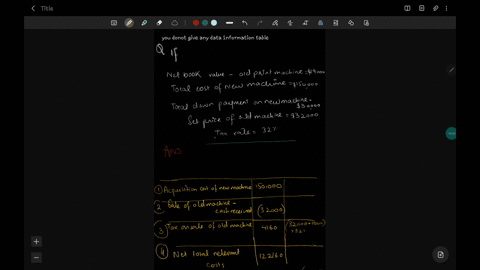 Title
you donot give any data Information table
Q If
Net book value - old print machine =
Total cost of new machine = 150,000
Total down payment on new machine =
$30000
Set price of old machine = $32000
Tax rate = 32%
Ans
① Acquisition cost of new machine 150000
② Sale of old machine - cash received (32000)
③ Tax on sale of old machine 4160
④ Net total relevant costs 122160